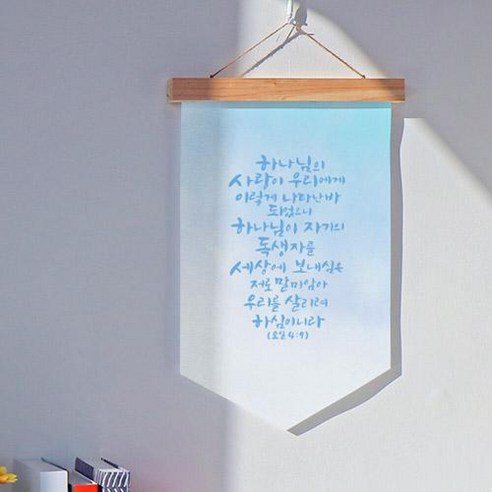 하나님의
사랑이 우리에게
이렇게 나타난바
되었으니
하나님이 자기의
독생자를
세상에 보내심은
저로 말미암아
우리를 살리려
하심이니라
(요일 4:9)